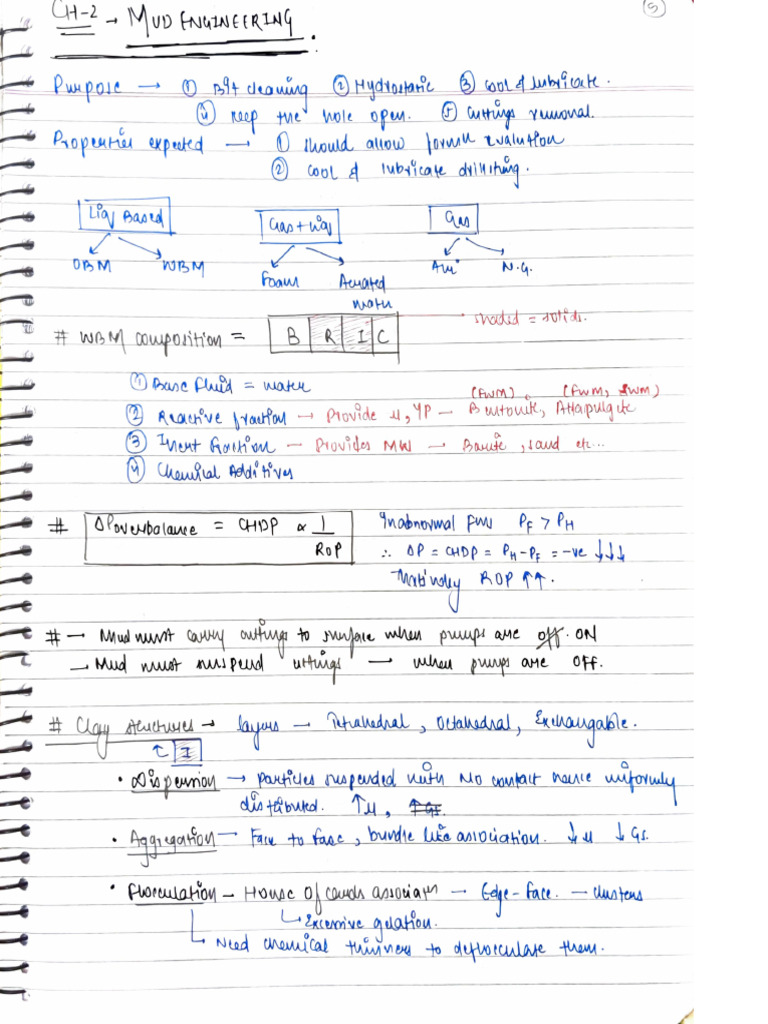 5
CH-2 → MUD ENGINEERING.
Purpose → ① Bit cleaning ② Hydrostatic ③ cool & lubricate.
④ keep the hole open. ⑤ cuttings removal.
Properties expected → ① should allow formn evalution
② cool & lubricate drillstring.
Liq Based
Gas+Liq
Gas
OBM WBM
Foam Aerated water
Air N.G.
# WBM composition = B R I C
shaded = solids.
① Base fluid = water
(FWM), (FWM, SWM)
② Reactive fraction → Provide μ, YP — Bentonite, Attapulgite
③ Inert fraction — Provides MW — Barite, sand etc...
④ Chemical Additives
# ΔPoverbalance = CHDP ∝ 1/ROP
In abnormal fmn PF > PH
∴ ΔP = CHDP = PH-PF = -ve ↓↓↓
ROP ↑↑.
# → Mud must carry cuttings to surface when pumps are off. ON
→ Mud must suspend cuttings → when pumps are OFF.
# Clay structures → layers → Tetrahedral, Octahedral, Exchangable.
I
• Dispersion → Particles suspended with No contact hence uniformly
distributed. ↑μ, ↑Gs.
• Aggregation — Face to face, bundle like association. ↓μ ↓Gs.
• Flocculation — House of cards associatn — Edge-face. — clusters
↳ Excessive gelation.
↳ Need chemical thinners to deflocculate them.